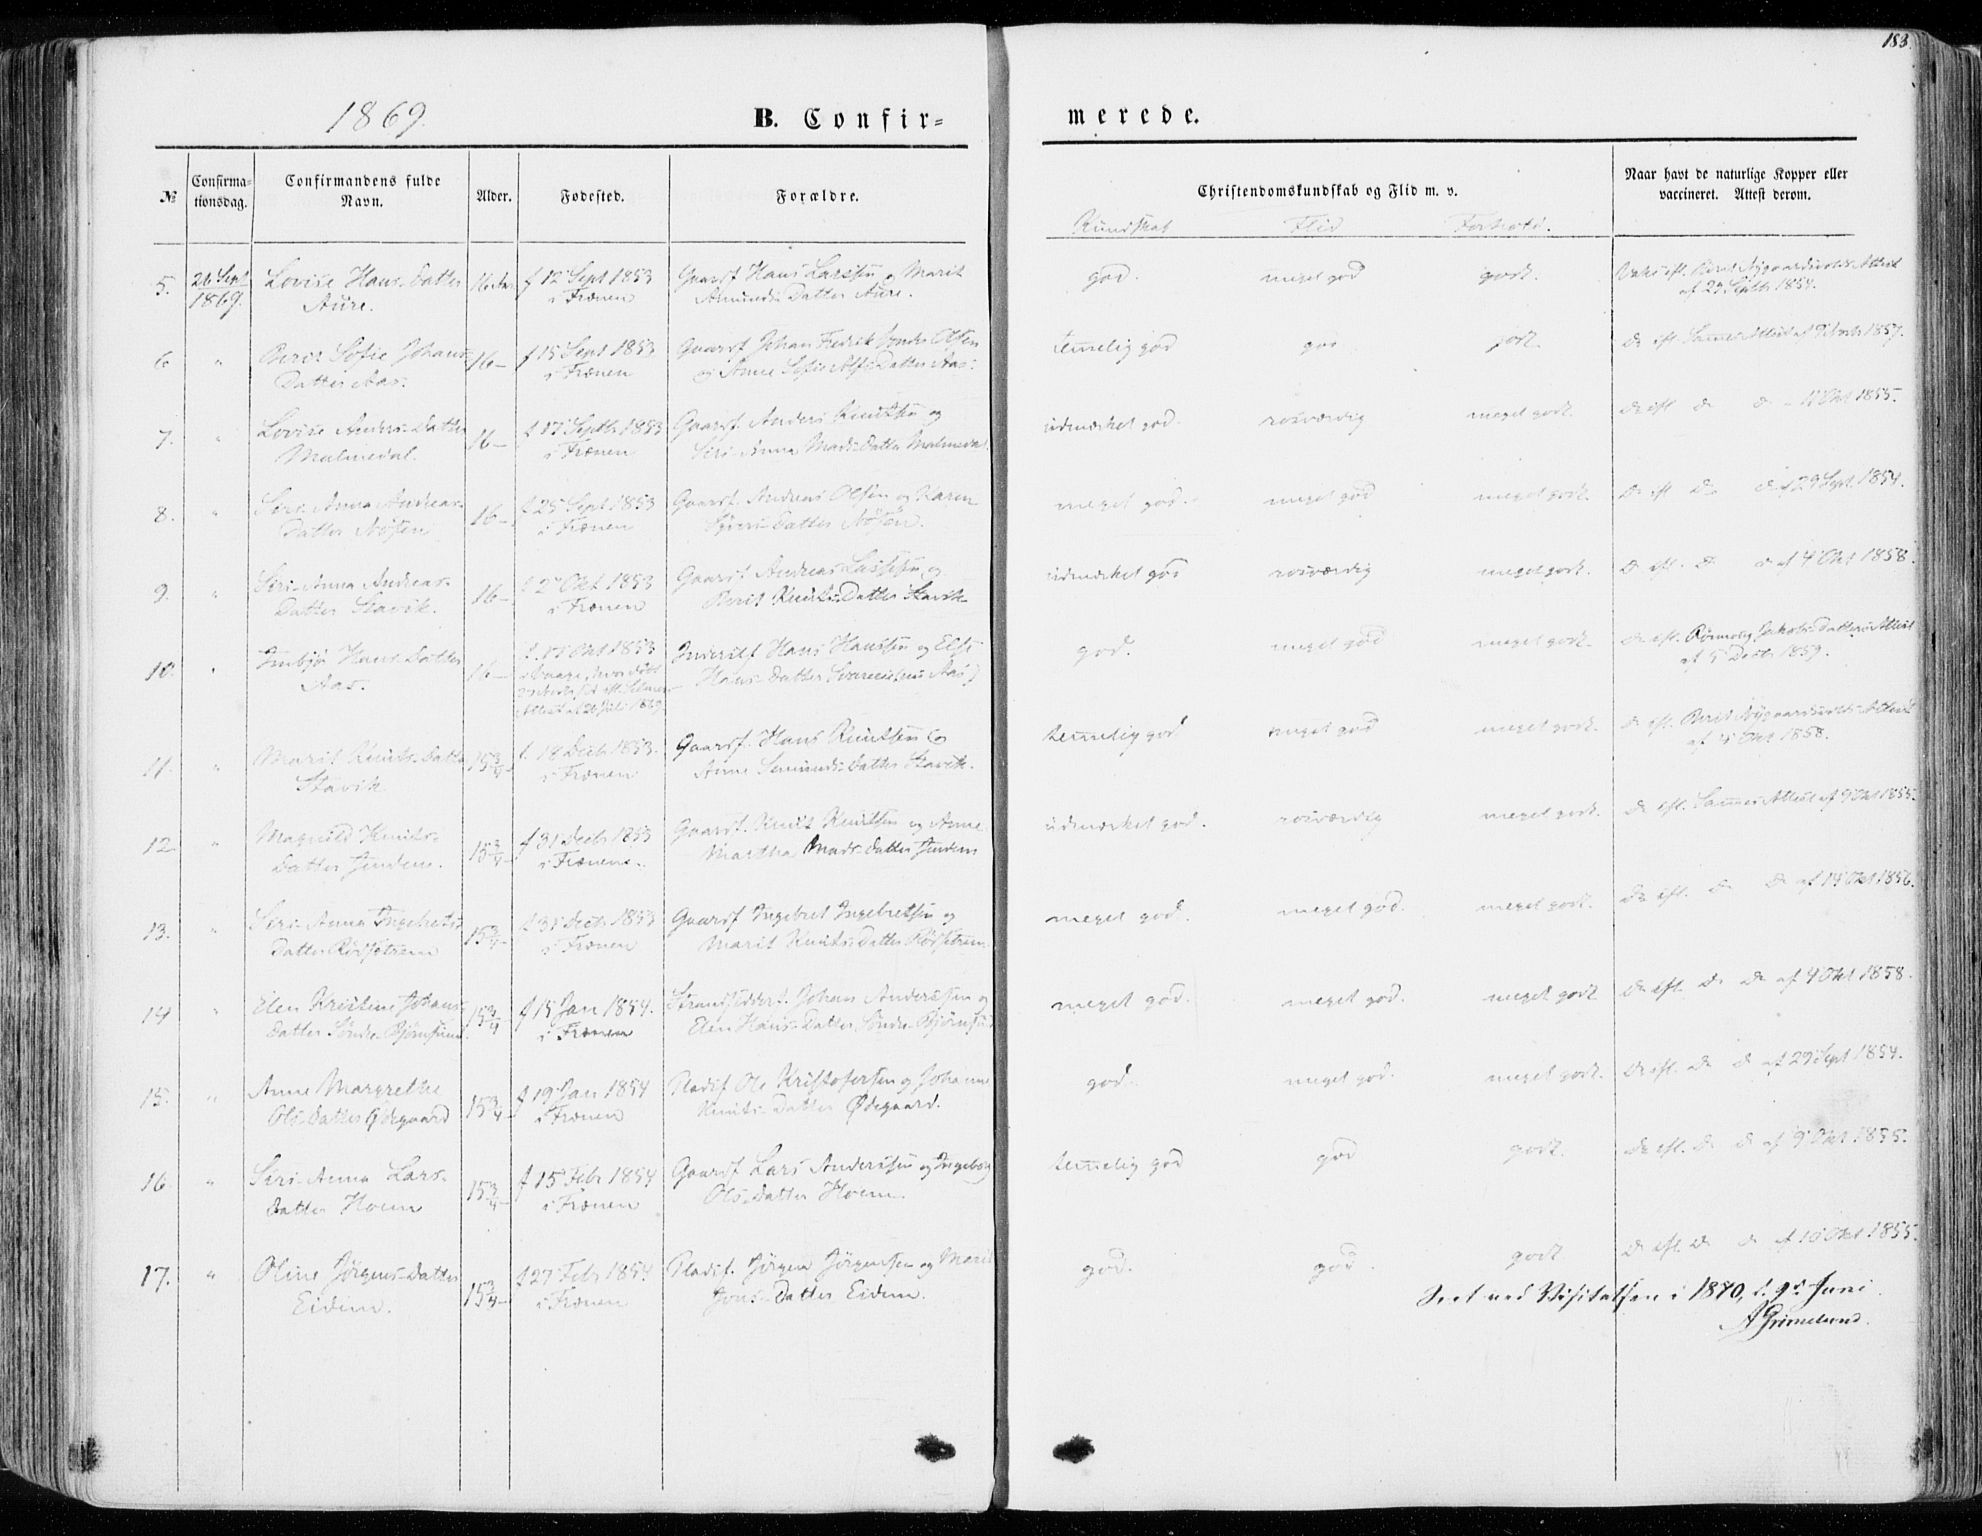 183.
1869.
B. Confir=
merede.
№
Confirma-
tionsdag.
Confirmandens fulde
Navn.
Alder.
Fødested.
Forældre.
Christendomskundskab og Flid m. v.
Kundskab Flid Forhold.
Naar havt de naturlige Kopper eller
vaccineret. Attest derom.
5.
26 Sept
1869.
Lovise Hans-Datter
Aure.
f 12 Sept 1853
i Frænen
Gaardf Hans Larssen og Marit
Amunds-Datter Aure.
god. meget god godt.
af 29 Septbr 1854.
6 "
Sofie Johans-
Datter Aas.
16-
f 15 Sept 1853
i Frænen
Gaardf Johan Fredrik Olsen
og Anne Sofie Datter Aas.
temelig god god godt.
7. "
Lovise Anders-Datter
Malmedal.
16-
f 17 Septb 1853
i Frænen
Gaardf Anders Knutsen og
Siri-Anna Mads-Datter Malmedal
udmærket god. rosværdig meget godt.
Do efl. Do Do 11 Okt 1855.
8. "
Siri-Anna Andreas-
Datter Nøsen
16-
f 25 Sept 1853
i Frænen
Gaardf. Andreas Olsen og Karen
Datter Nøsen.
meget god. meget god meget godt.
Do efl Do Do af 29 Sept 1854.
9. "
Siri-Anna Andreas-
Datter Stavik.
16-
f 2 Okt 1853
i Frænen
Gaardf Andreas Lassesen og
Berit Knuts-Datter Stavik
udmærket god rosværdig meget godt.
Do efl. Do Do af 4 Okt 1858.
10. "
Hans-Datter
Aas.
16-
f. 17 Okt 1853
Attest af 26 Juli 1869
Inderst Hans Hanssen og Else
Hans-Datter
god. meget god meget godt.
Do efl. Jakobs-Datters Attest
af 5 Decbr 1859.
11. "
Marit Knuts-Datter
Stavik
15 3/4-
f. 18 Decb 1853.
i Frænen
Gaardf. Hans Knutsen og
Anne Datter Stavik.
temelig god meget god meget godt.
Do efl. Berit Nygaardsvolds Attest
af 4 Okt 1858.
12 "
Magnild Knuts-
Datter Jendem.
15 3/4-
f 31 Decb 1853
i Frænen.
Gaardf. Knut Knutsen og Anne
Martha Mads-Datter Jendem
udmærket god. rosværdig meget godt.
Do efl. Sammes Attest af 9 Okt 1855.
13. "
Siri-Anna Ingebrets-
Datter Rødsetrem
15 3/4-
f 31 Decb 1853
i Frænen
Gaardf Ingebret Ingebretsen og
Marit Knuts-Datter Rødsetrem
meget god. meget god. meget godt.
Do efl. Do Do af 14 Okt 1856.
14 "
Elen Kristine Johans-
Datter Søndre-Bjørnsund.
15 3/4
f 15 Jan 1854.
i Frænen
Strandsidderf. Johan Anderssen og
Elen Hans-Datter Søndre-Bjørnsund
meget god. meget god. meget godt
Do efl. Do Do af 4 Okt 1858.
15. "
Anne Margrethe
Ols-Datter Ødegaard
15 3/4-
f 19 Jan 1854
i Frænen
Pladsf Ole Kristofersen og Johanne
Knuts-Datter Ødegaard.
god. meget god. meget godt.
Do efl. Do Do af 29 Sept 1854.
16. "
Siri-Anna Lars-
Datter Hoem
15 3/4-
f 15 Febr 1854
i Frænen
Gaardf Lars Anderssen og Ingeborg
Ols-Datter Hoem.
temelig god god godt.
Do efl. Do Do af 9 Okt 1855.
17. "
Oline Jørgens-Datter
Eidem.
15 3/4-
f 27 Febr 1854
i Frænen
Pladsf. Jørgen Jørgensen og Marit
Jons-Datter Eidem.
god. god. godt
Do efl. Do Do af 10 Okt 1855.
Seet ved Visitatsen i 1870, d. 9de Juni.
A Grimelund.